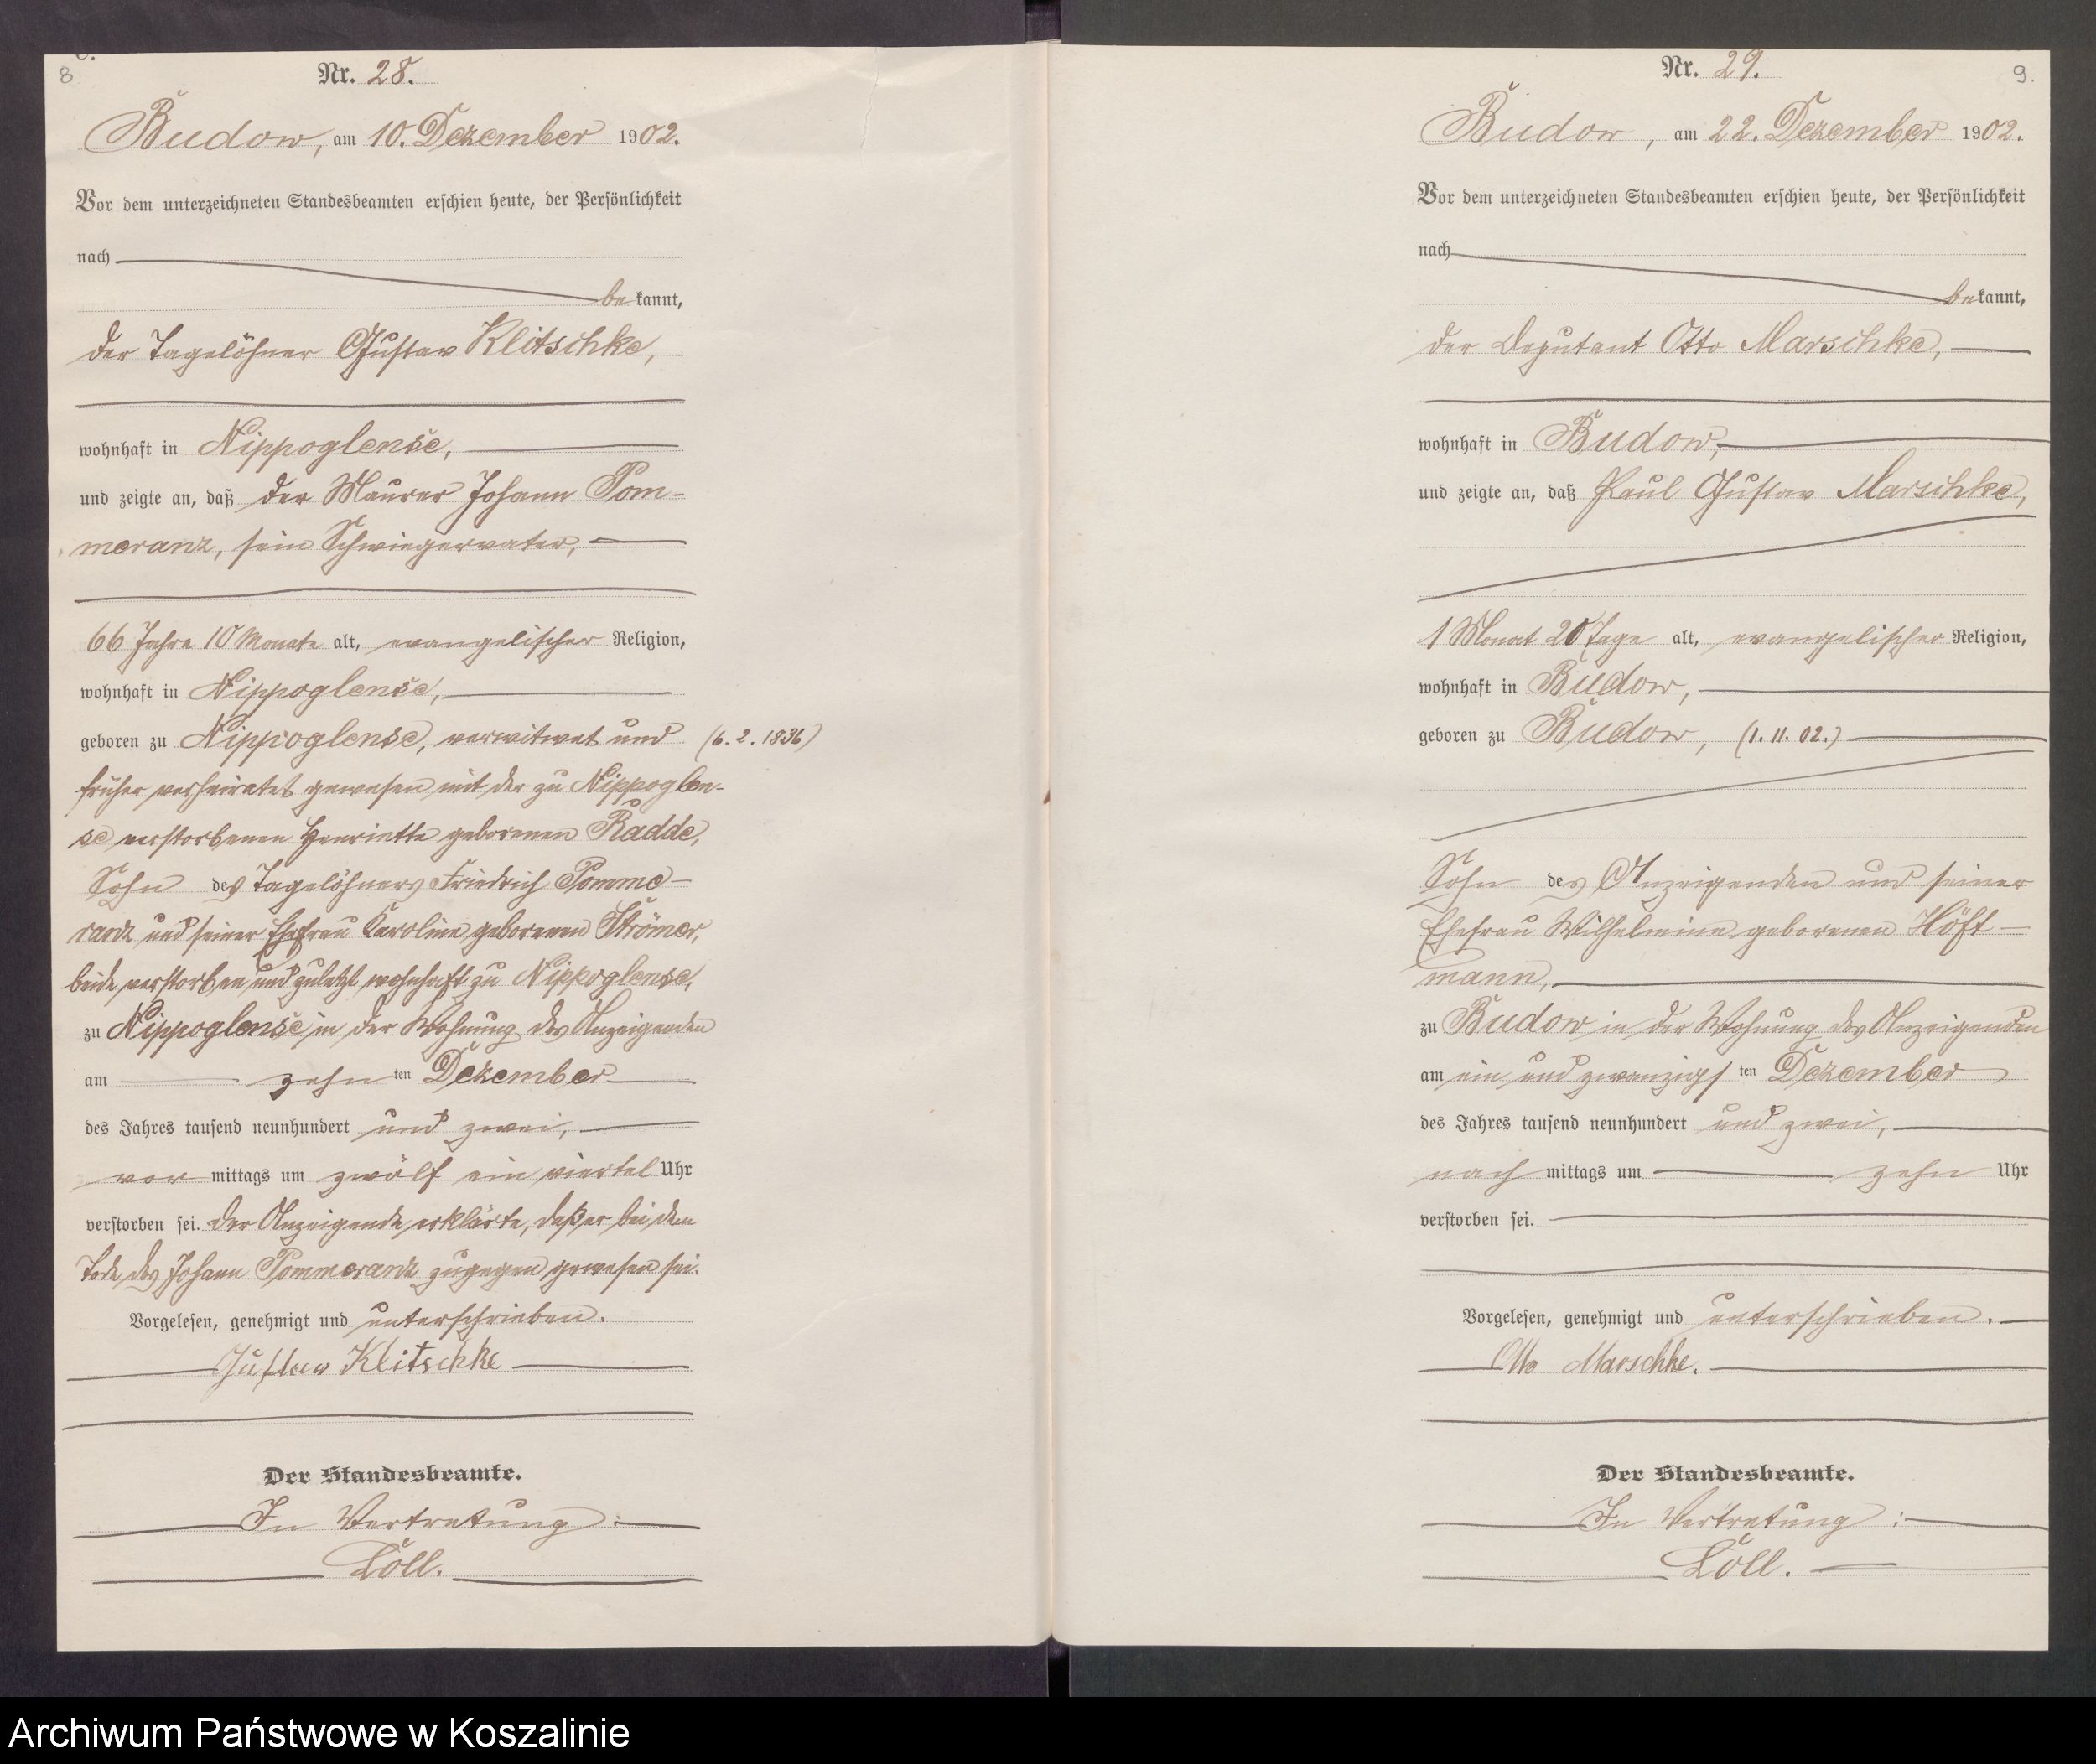 8
Nr. 28.
Budow, am 10. Dezember 1902.
Vor dem unterzeichneten Standesbeamten erschien heute, der Persönlichkeit
nach
bekannt,
der Tagelöhner Gustav Klitschke,
wohnhaft in Nippoglense,
und zeigte an, daß der Maurer Johann Pom-
meranz, sein Schwiegervater,
66 Jahre 10 Monate alt, evangelischer Religion,
wohnhaft in Nippoglense,
geboren zu Nippoglense, verwitwet und (6. 2. 1836)
früher verheiratet gewesen mit der zu Nippoglen-
se verstorbenen Henriette geborenen Radde,
Sohn des Tagelöhners Friedrich Pomme-
ranz und seiner Ehefrau Karoline geborenen Strömer,
beide verstorben und zuletzt wohnhaft zu Nippoglense,
zu Nippoglense in der Wohnung des Anzeigenden
am zehnten Dezember
des Jahres tausend neunhundert und zwei,
vormittags um zwölf ein viertel Uhr
verstorben sei. Der Anzeigende erklärte, daß er bei dem
Tode des Johann Pommeranz zugegen gewesen sei.
Vorgelesen, genehmigt und unterschrieben.
Gustav Klitschke
Der Standesbeamte.
In Vertretung:
Löll.
9.
Nr. 29.
Budow, am 22. Dezember 1902.
Vor dem unterzeichneten Standesbeamten erschien heute, der Persönlichkeit
nach
bekannt,
der Deputant Otto Marschke,
wohnhaft in Budow,
und zeigte an, daß Paul Gustav Marschke,
1 Monat 20 Tage alt, evangelischer Religion,
wohnhaft in Budow,
geboren zu Budow, (1. 11. 02.)
Sohn des Anzeigenden und seiner
Ehefrau Wilhelmine geborenen Höft-
mann,
zu Budow in der Wohnung des Anzeigenden
am ein und zwanzigsten Dezember
des Jahres tausend neunhundert und zwei,
nachmittags um zehn Uhr
verstorben sei.
Vorgelesen, genehmigt und unterschrieben.
Otto Marschke.
Der Standesbeamte.
In Vertretung:
Löll.
Archiwum Państwowe w Koszalinie